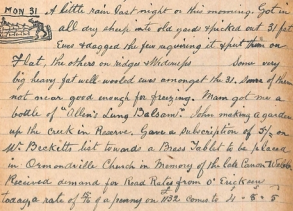 MON 31 A little rain last night or this morning. Got in
all dry sheep into old yards & picked out 31 fat
Ewes & dagged the few requiring it & put them on
Flat, the others on ridges & Midways Some very
big heavy fat well wooled ewes amongst the 31. Some of them
not near good enough for freezing. Mam got me a
bottle of "Allen's Lung Balsam". John making a garden
up the creek in Reserve. Gave a subscription of 5/- on
Mr Becketts list towards a Brass Tablet to be placed
in Ormondville Church in Memory of the late Canon Webster
Received demand for Road Rates from O' Ericksen
today, a rate of of a penny on 1132 Comes to 4-8-5